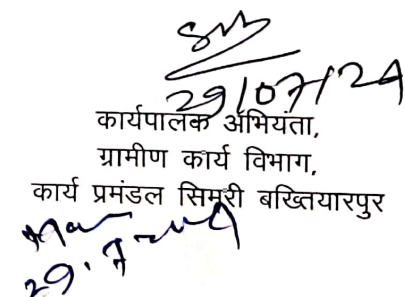 29/07/24
कार्यपालक अभियंता,
ग्रामीण कार्य विभाग,
कार्य प्रमंडल सिमरी बख्तियारपुर
29.7